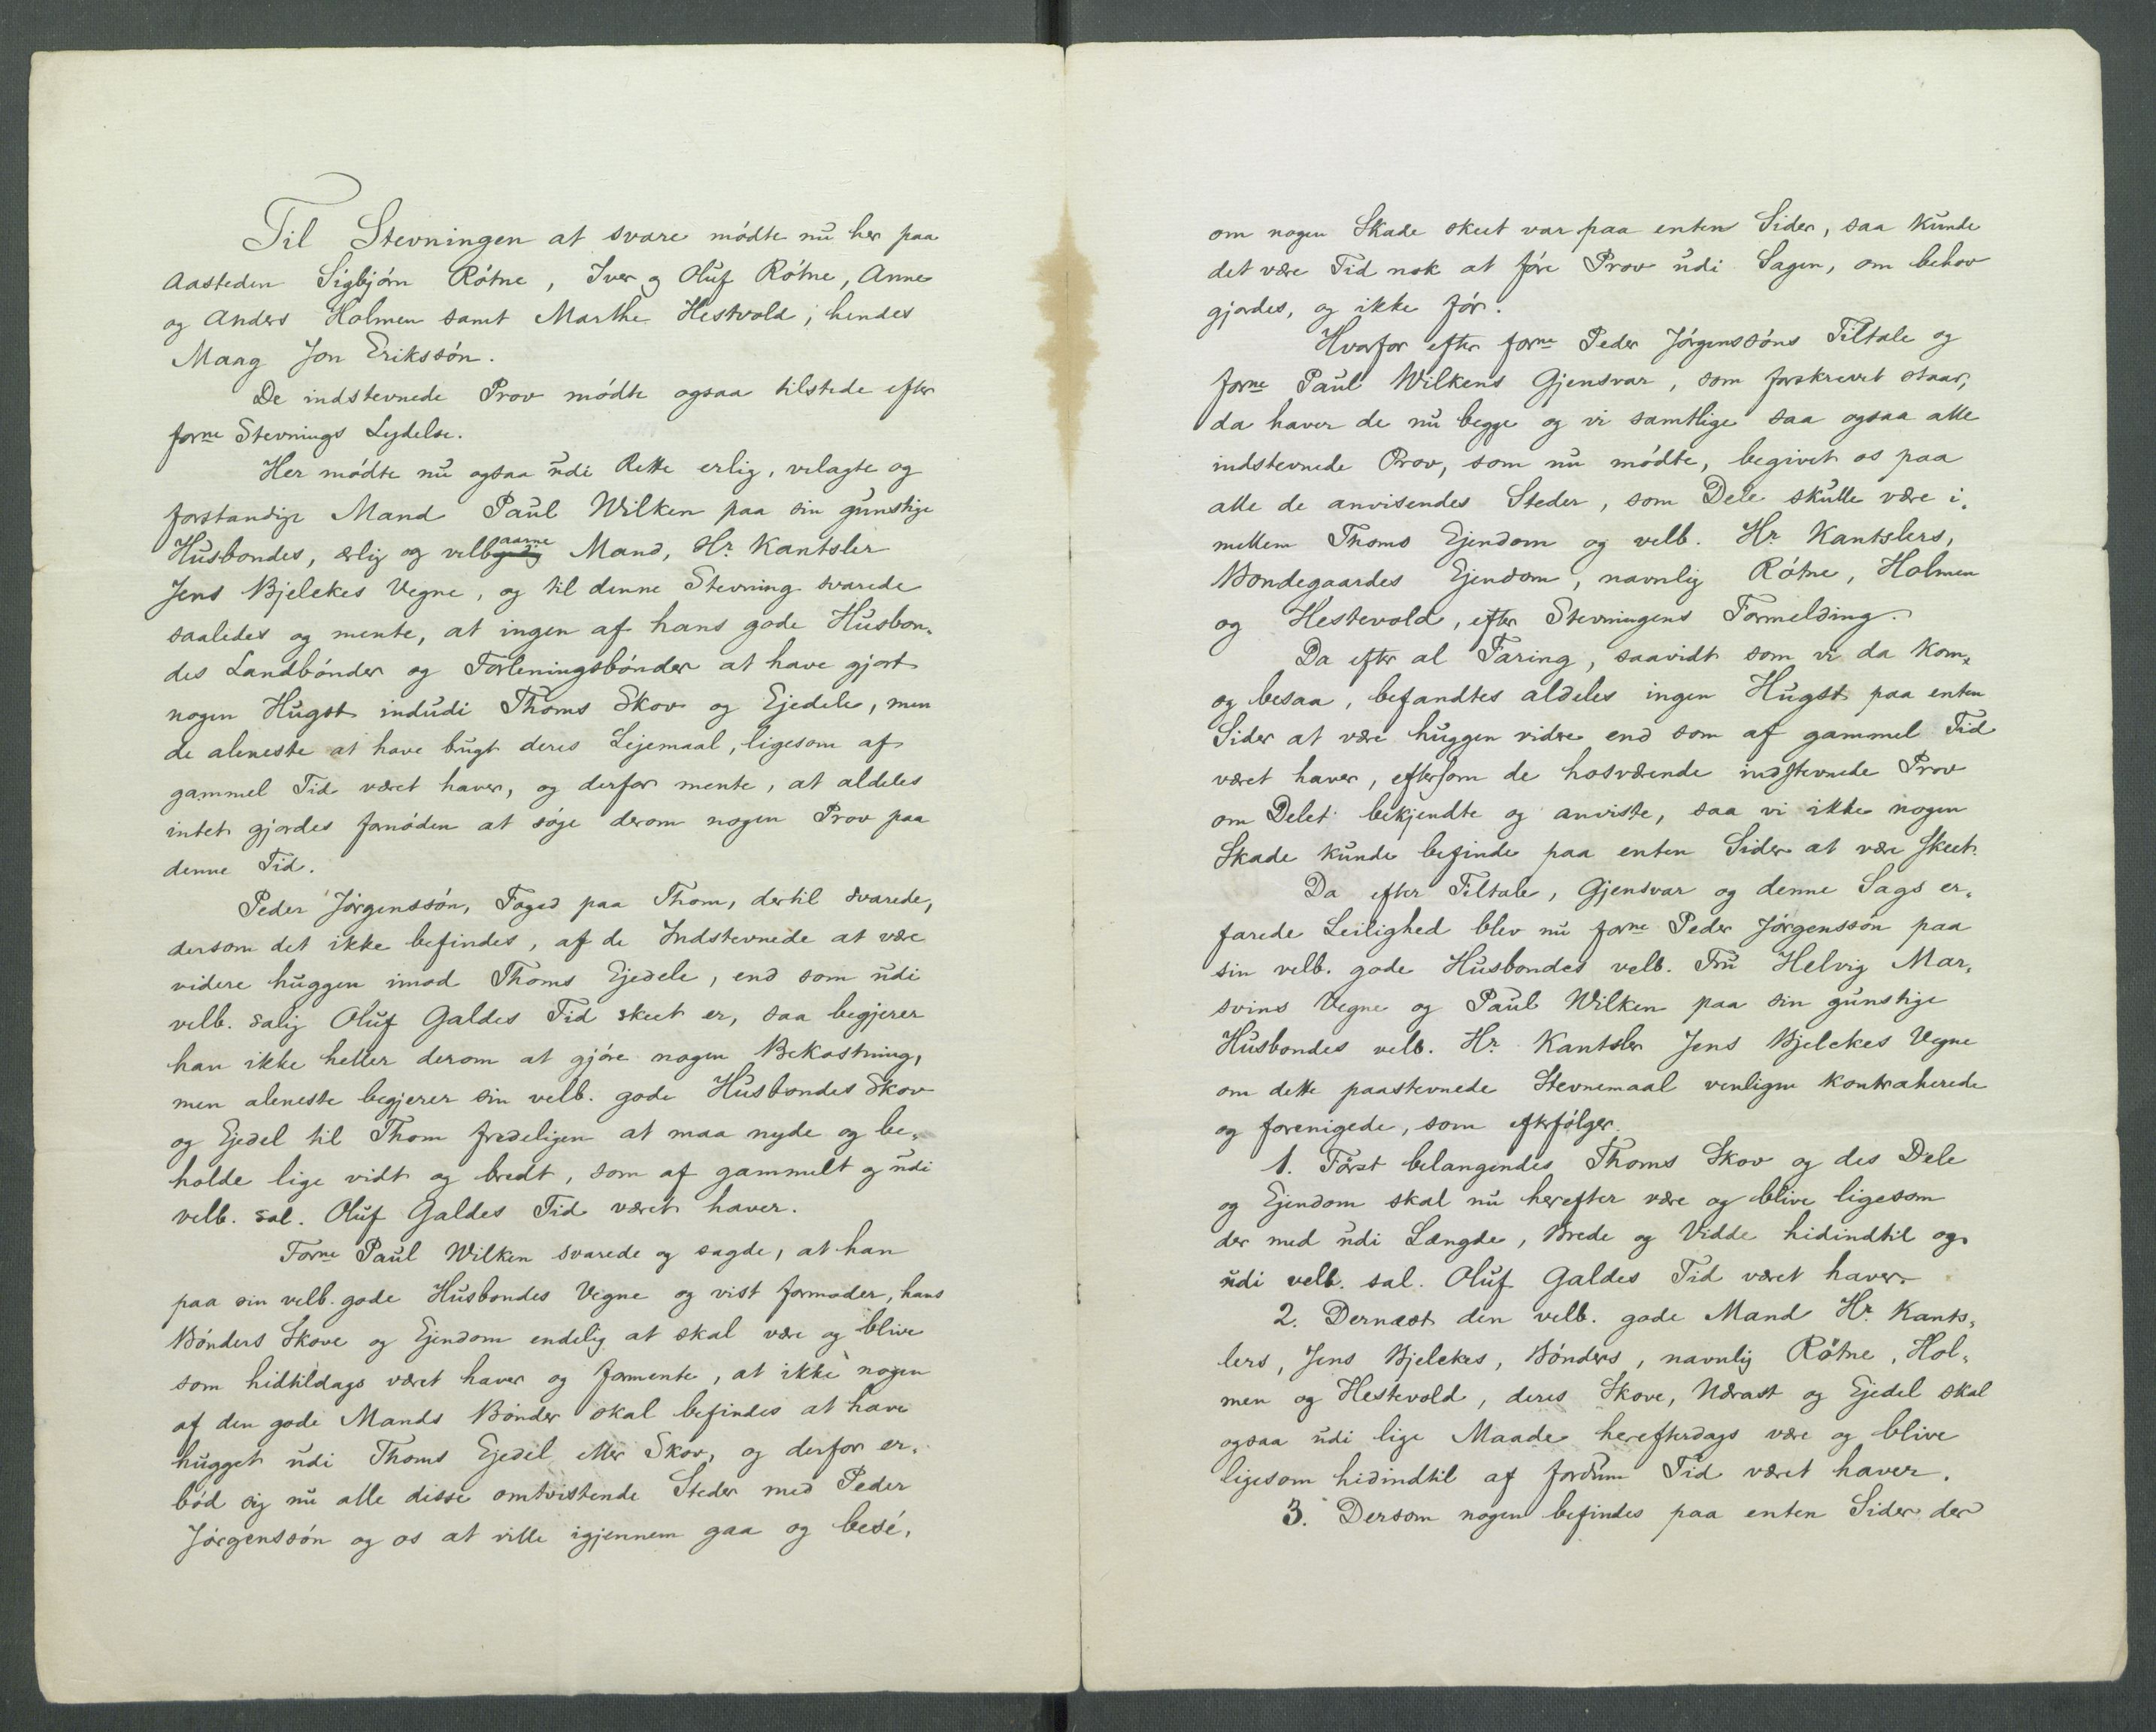 Til Stevningen at svare mödte nu her paa
Aasteden Sigbjörn Rötne, Iver og Oluf Rötne, Anne
og Anders Holmen samt Marthe Hestvold, hendes
Maag Jon Erikssön.
De indstevnede Prov mödte ogsaa tilstede efter
forne Stevnings Lydelse.
Her mödte nu ogsaa udi Rette erlig, velagte og
forstandige Mand Paul Wilken paa sin gunstige
Husbondes, ærlig og velbaarne Mand, Hr. Kantsler
Jens Bjelckes Vegne, og til denne Stevning svarede
saaledes og mente, at ingen af hans gode Husbon-
des Landbönder og Forleningsbönder at have gjort
nogen Hugst indudi Thoms Skov og Ejedele, men
de aleneste at have brugt deres Lejemaal, ligesom af
gammel Tid været haver, og derfor mente, at aldeles
intet gjordes fornöden at söge derom nogen Prov paa
denne Tid.
Peder Jörgenssön, Foged paa Thom, dertil svarede,
dersom det ikke befindes, af de Indstevnede at være
videre huggen imod Thoms Ejedele, end som udi
velb. salig Oluf Galdes Tid skeet er, saa begjerer
han ikke heller derom at gjöre nogen Bekostning,
men aleneste begjerer sin velb. gode Husbondes Skov
og Ejedel til Thom fredeligen at maa nyde og be-
holde lige vidt og bredt, som af gammelt og udi
velb. sal. Oluf Galdes Tid været haver.
Forne Paul Wilken svarede og sagde, at han
paa sin velb. gode Husbondes Vegne og vist formoder, hans
Bönders Skove og Ejendom endelig at skal være og blive
som hidtildags været haver og formente, at ikke nogen
af den gode Mands Bönder skal befindes at have
hugget udi Thoms Ejedel eller Skov, og derfor er-
böd sig nu alle disse omtvistende Steder med Peder
Jörgenssön og os at ville igjennem gaa og besé,
om nogen Skade skeet var paa enten Sider, saa kunde
det være Tid nok at före Prov udi Sagen, om behov
gjordes, og ikke för.
Hvorfor efter forne Peder Jörgenssöns Tiltale og
forne Paul Wilkens Gjensvar, som forskrevet staar,
da haver de nu begge og vi samtlige saa ogsaa alle
indstevnede Prov, som nu mödte, begivet os paa
alle de anvisendes Steder, som Dele skulle være i-
mellem Thoms Ejendom og velb. Hr. Kantslers,
Bondegaardes Ejendom, navnlig Rötne, Holmen
og Hestevold, efter Stevningens Formelding.
Da efter al Faring, saavidt som vi da kom
og besaa, befandtes aldeles ingen Hugst paa enten
Sider at være huggen videre end som af gammel Tid
været haver, eftersom de hosværende indstevnede Prov
om Delet bekjendte og anviste, saa vi ikke nogen
Skade kunde befinde paa enten Sider at være skeet.
Da efter Tiltale, Gjensvar og denne Sags er-
farede Leilighed blev nu forne Peder Jörgenssön paa
sin velb. gode Husbondes velb. Fru Helvig Mar-
svins Vegne og Paul Wilken paa sin gunstige
Husbondes velb. Hr. Kantsler Jens Bjelckes Vegne
om dette paastevnede Stevnemaal venligen kontraherede
og forenigede, som efterfölger.
1. Först belangendes Thoms Skov og des Dele
og Ejendom skal nu herefter være og blive ligesom
der med udi Længde, Brede og Vidde hidindtil og
udi velb. sal. Oluf Galdes Tid været haver.
2. Dernæst den velb. gode Mand Hr. Kants-
lers, Jens Bjelckes, Bönders, navnlig Rötne, Hol-
men og Hestevold, deres Skove, Udrast og Ejedel skal
ogsaa udi lige Maade herefterdags være og blive
ligesom hidindtil af fordum Tid været haver.
3. Dersom nogen befindes paa enten Sider der